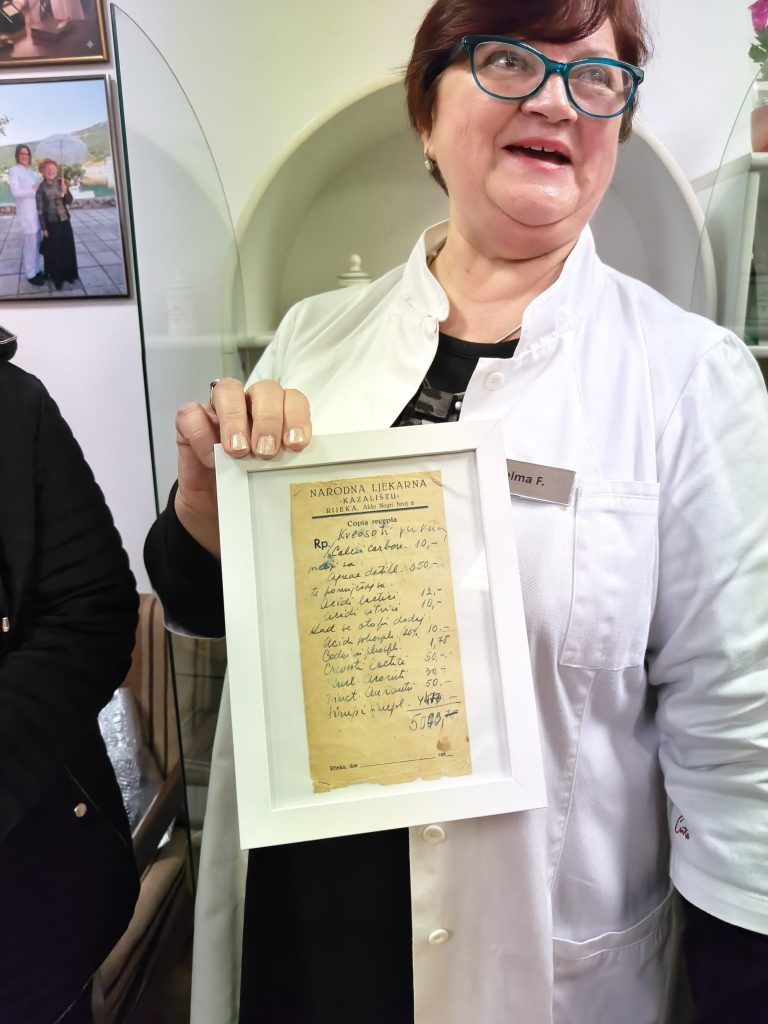 NARODNA LJEKARNA
-KAZALIŠTU-
RIJEKA, Aldo Negri broj 2
Copia recepta
Rp. Kreosoti
Calcii carbon. 10,-
Aquae destill. 350,-
Acidi lactici 12,-
Acidi citrici 10,-
Kad se otopi dodaj
Acidi phosph. 20% 10.-
Codeini phosph. 1,75
Creosoti lactici 50,-
Tinct. Aconiti 30,-
Tinct. Aurantii 50.-
Sirupi simpl.
Rijeka, dne 195
elma F.